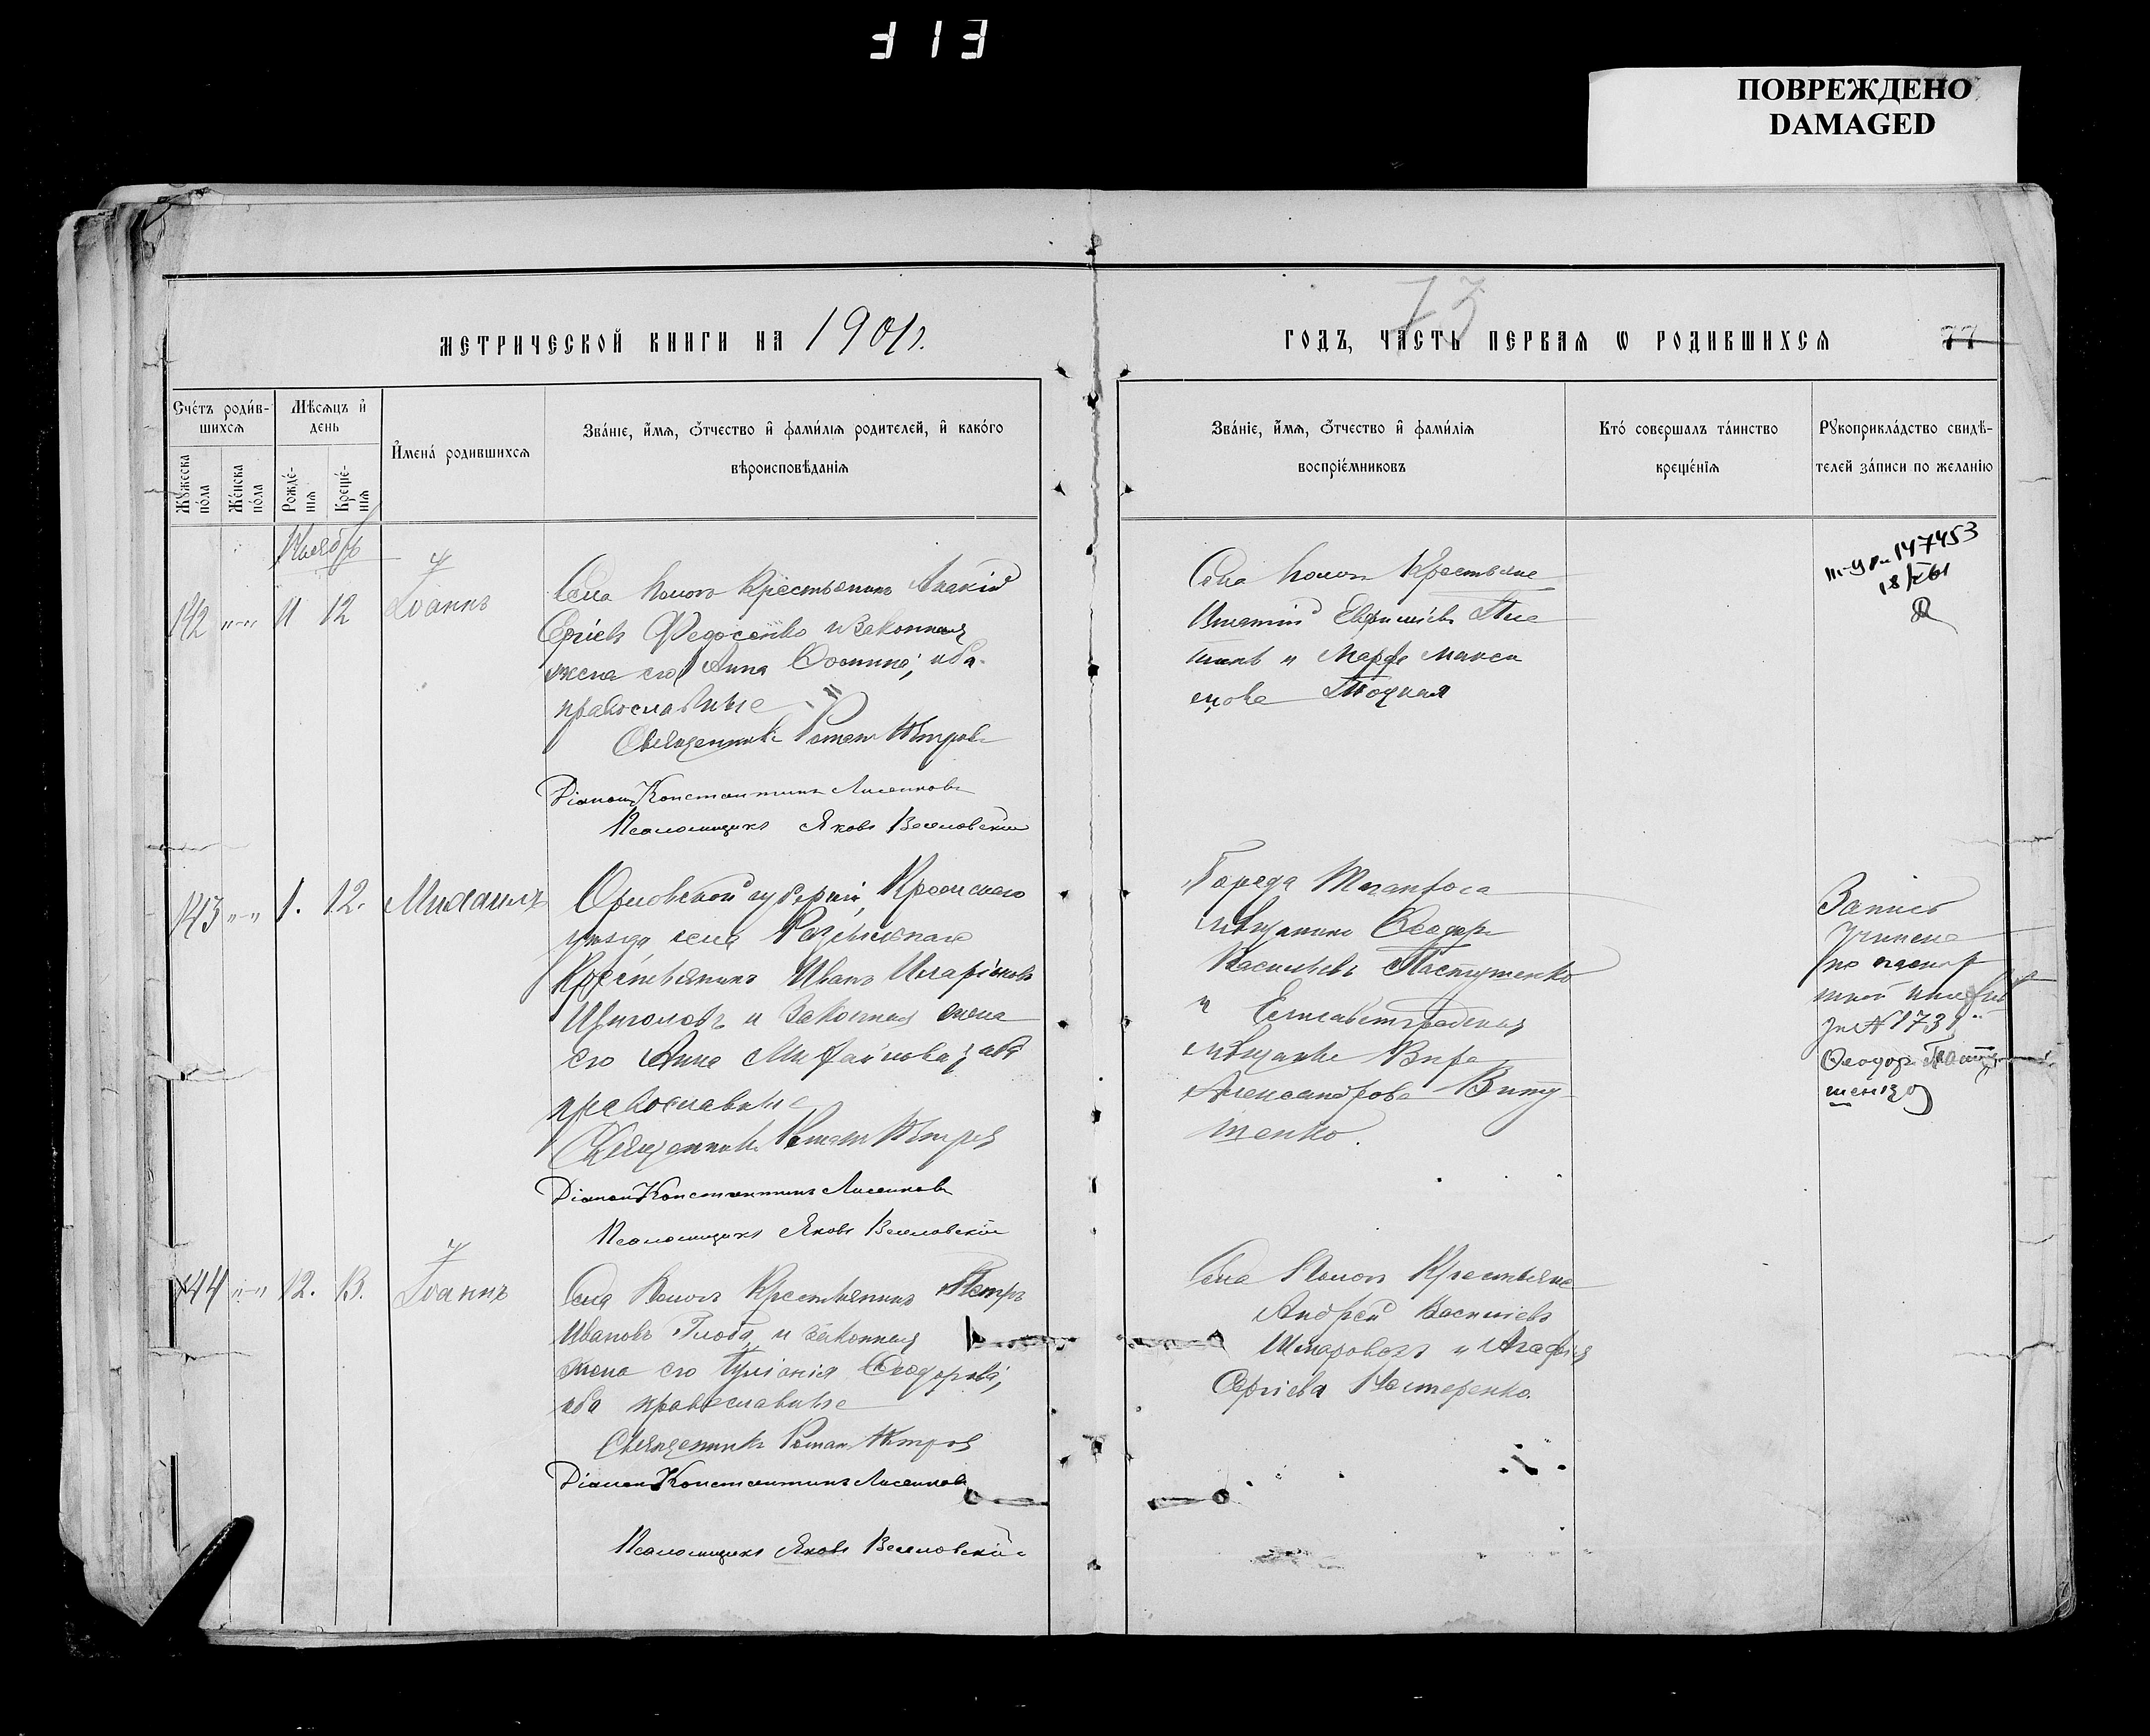 313
ПОВРЕЖДЕНО
DAMAGED
73
МЕТРИЧЕСКОЙ КНИГИ НА 1901 г.
ГОДЪ, ЧАСТЬ ПЕРВАЯ Ѡ РОДИВШИХСЯ
77
Счетъ родив-
шихся
Мѣсяцъ и
день
Имена родившихся
Званіе, имя, отчество и фамилія родителей, и какого
вѣроисповѣданія
Мужеска пола
Женска пола
Рожденія
Крещенія
Званіе, имя, отчество и фамилія
воспріемниковъ
Кто совершалъ таинство
крещенія
Рукоприкладство свидѣ-
телей записи по желанію
Ноябрь
142 "-" 11 12 Іоаннъ
Села крестьянинъ
Сергіевъ Федосенко и законная
жена его Анна оба
православные
Священникъ Роман Петровъ
Діаконъ Константинъ Лисенковъ
Псаломщикъ Яковъ Веселовскій
Села Крестьяне
и Марфа Макси
мова
147453
143 "-" 1. 12. Михаилъ
Орловской губерніи, Кромскаго
уѣзда села
Крестьянинъ Иванъ Иларіоновъ
Щиголевъ и законная жена
его Анна Михайлова; оба
православные
Священникъ Роман Петровъ
Діаконъ Константинъ Лисенковъ
Псаломщикъ Яковъ Веселовскій
Города
мѣщанинъ Ѳеодоръ
Васильевъ Пастушенко
и Елисаветградская
мѣщанка Вѣра
Александрова
тенко.
Запись
учинена
по паспор
тной книжкѣ
за № 1731
Ѳеодоръ Пасту
шенко
144 "-" 12. 13. Іоаннъ
Села Крестьянинъ Петръ
Ивановъ Глоба и законная
жена его Іуліанія Ѳеодорова;
оба православные
Священникъ Роман Петровъ
Діаконъ Константинъ Лисенковъ
Псаломщикъ Яковъ Веселовскій
Села Крестьяне
Андрей Васильевъ
и Агафія
Сергіева Нестеренко.